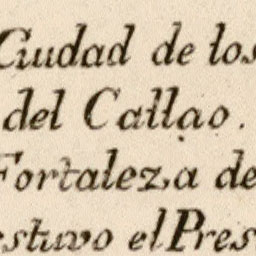 Ciudad de los
del Callao.
Fortaleza de
estuvo el Pres